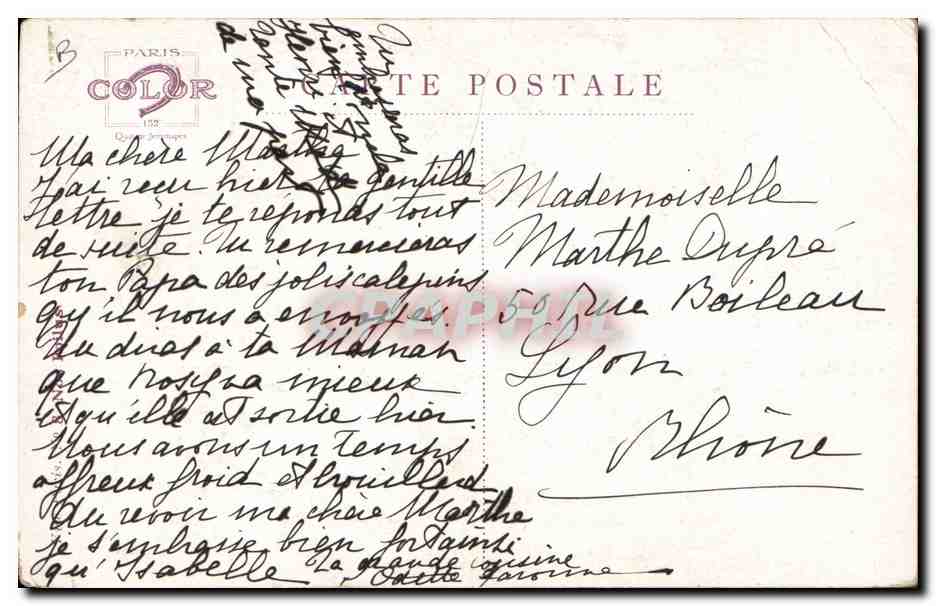 PARIS
COLOR
152
CARTE POSTALE
Ma chère Marthe
J'ai reçu hier ta gentille
lettre je te réponds tout
de suite. Tu remercieras
ton Papa des jolis calepins
qu'il nous a envoyés.
Tu diras à ta Maman
que va mieux
et qu'elle est sortie hier.
Nous avons un temps
affreux froid et brouillard
Au revoir ma chère Marthe
je t'embrasse bien fort ainsi
qu'Isabelle ta grande cousine
Odette
Tu
embrasseras
bien
et
de ma part
Mademoiselle
Marthe Dupré
50 Rue Boileau
Lyon
Rhône
CPAPHIL
B